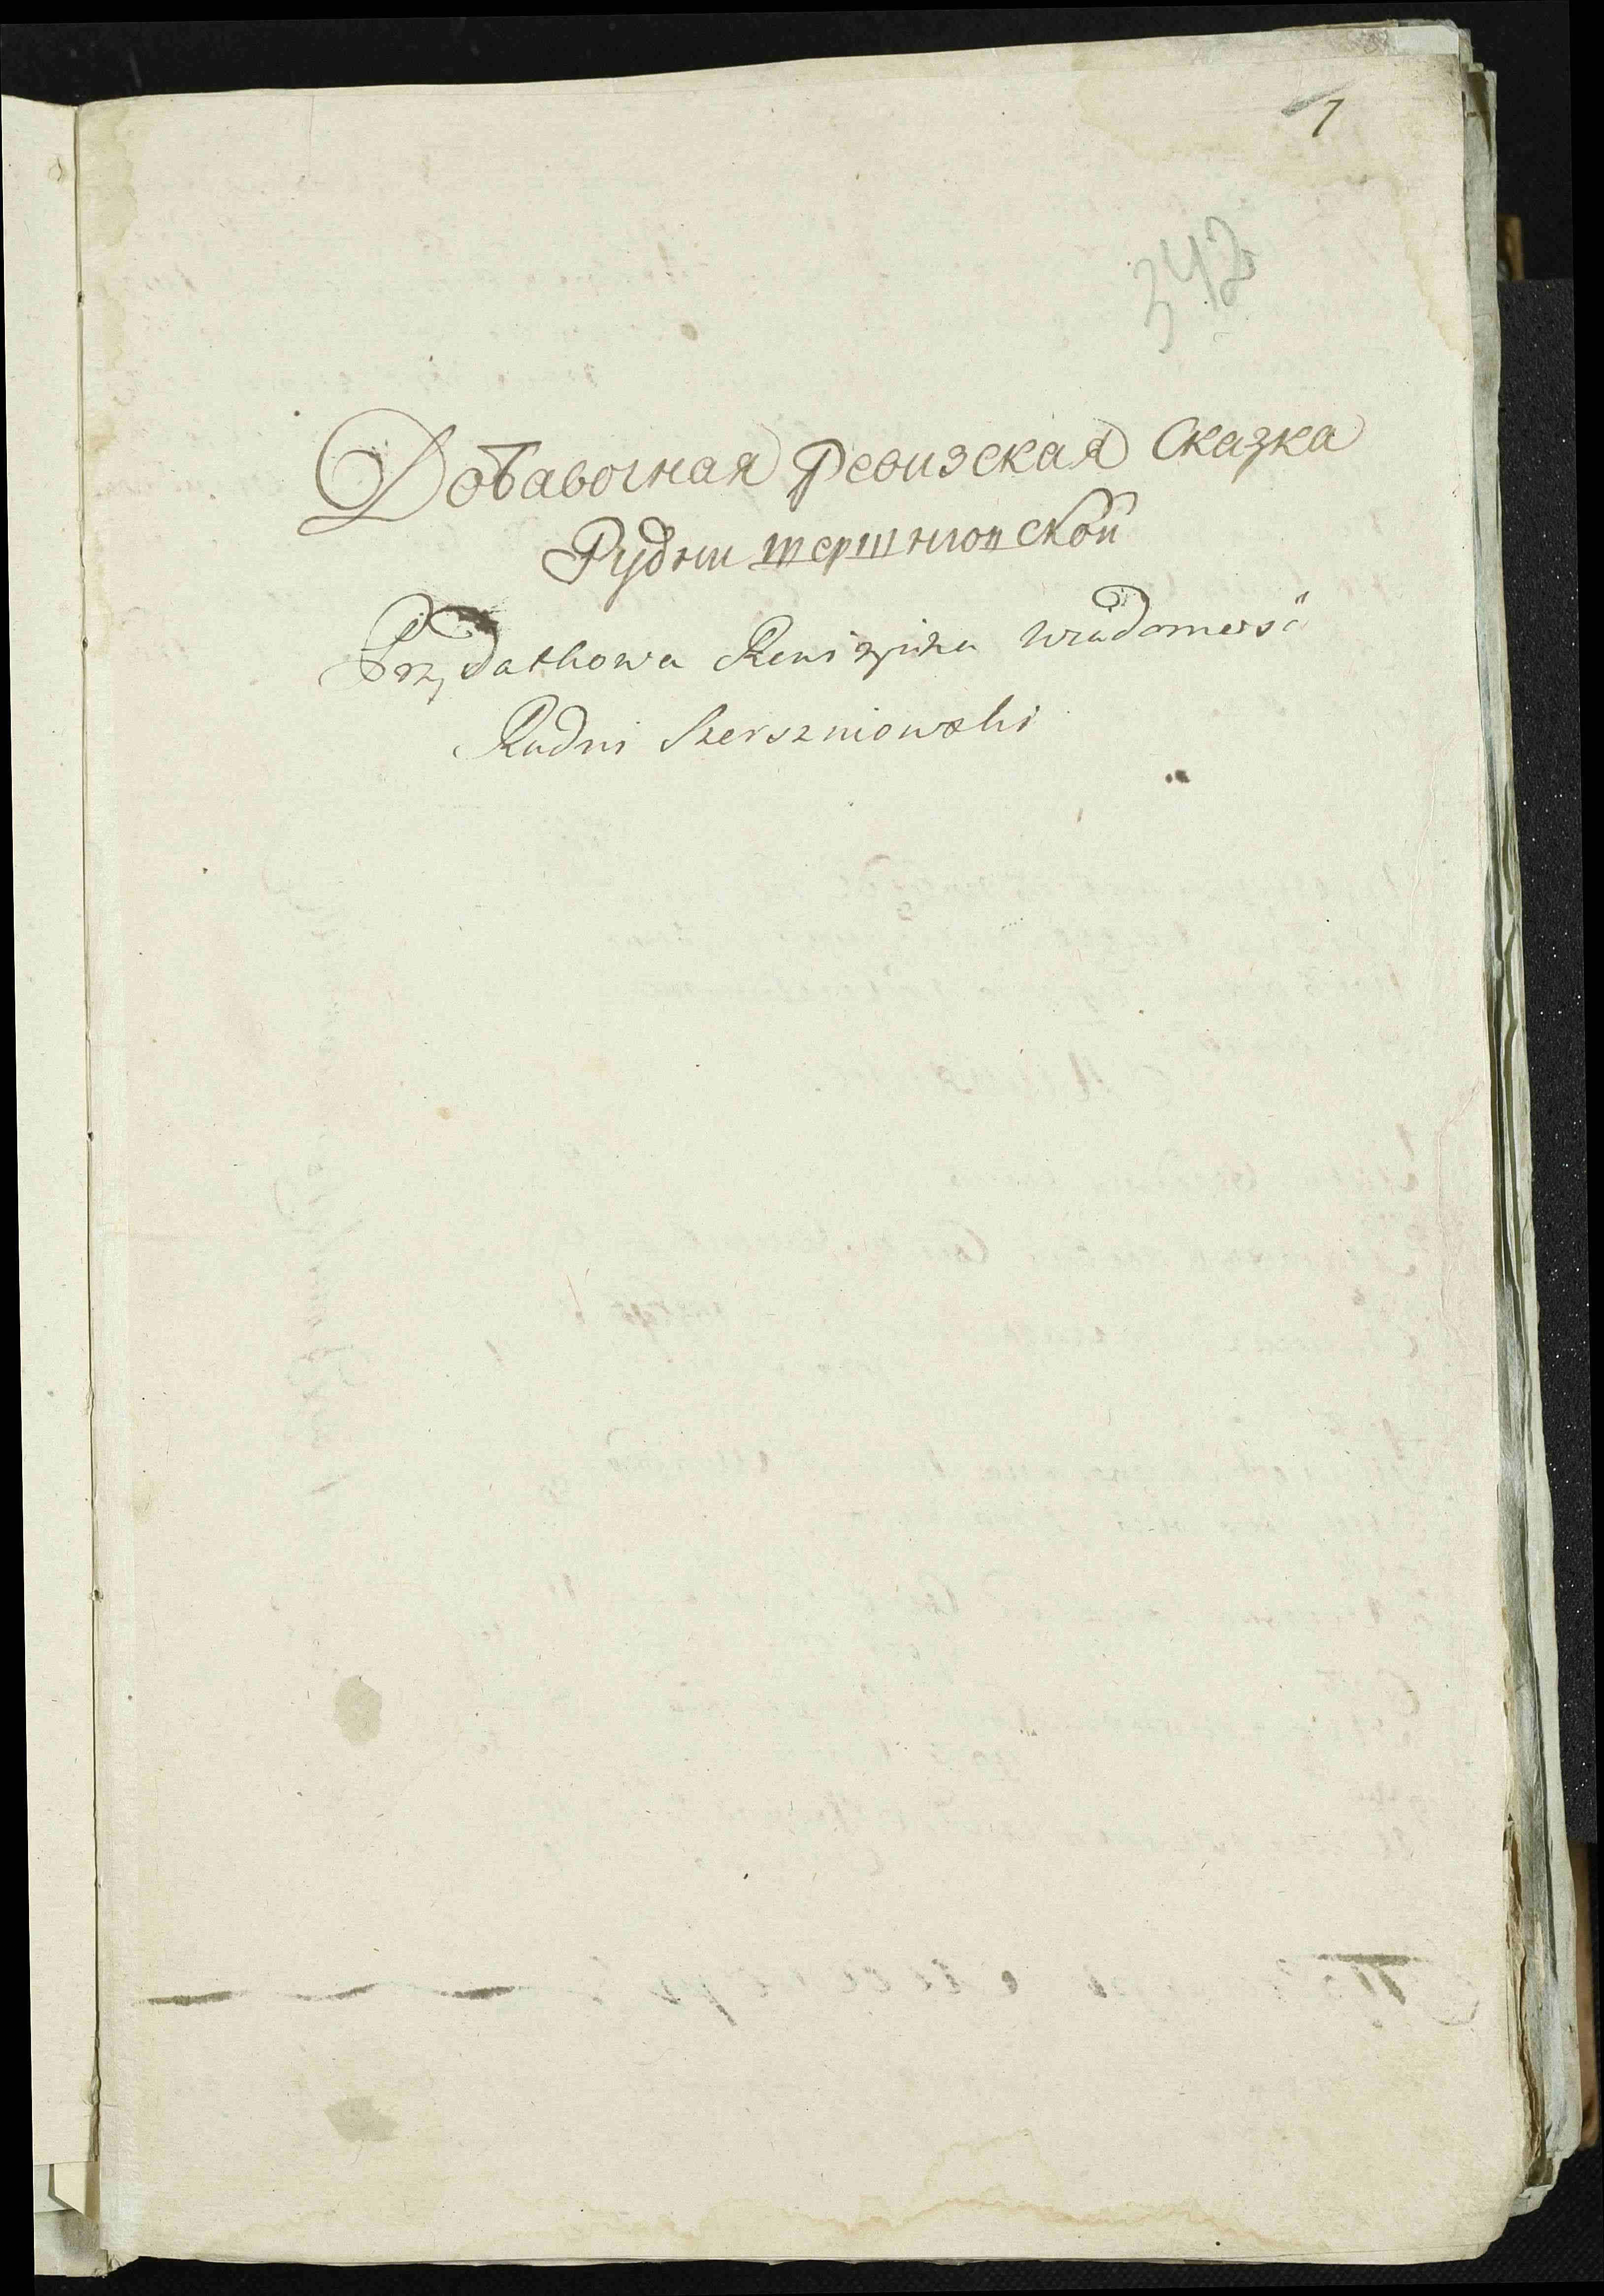 1
342
Добавочная Ревизская Сказка
Рудни шершнiовской
Przydatkowa Rewizyina wiadomosć
Rudni Szerszniowski